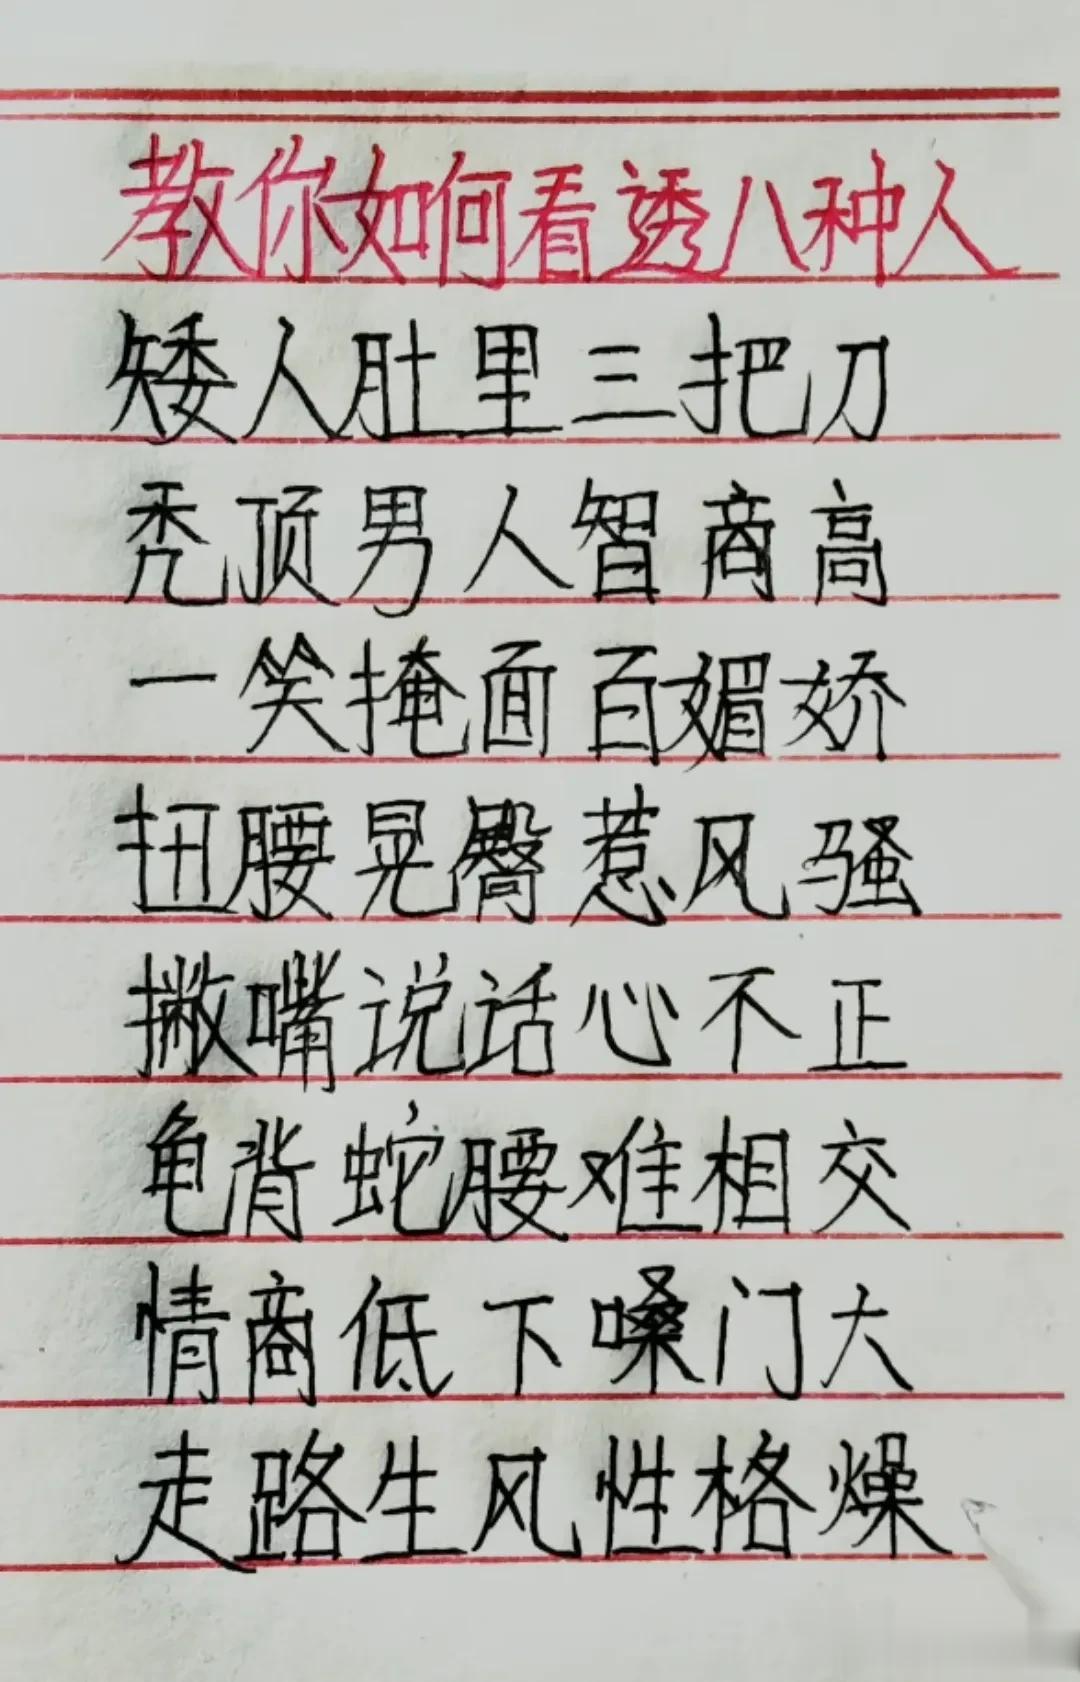 教你如何看透八种人
矮人肚里三把刀
秃顶男人智商高
一笑掩面百媚娇
扭腰晃臀惹风骚
撇嘴说话心不正
龟背蛇腰难相交
情商低下嗓门大
走路生风性格燥